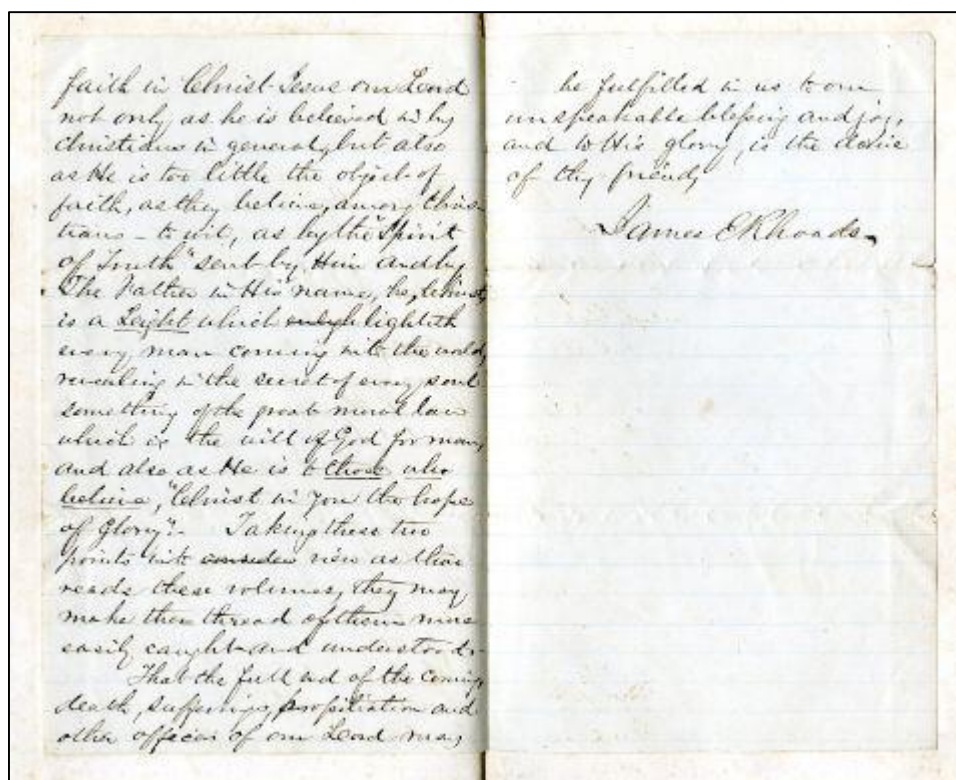 faith in Christ Jesus our Lord
not only as he is believed in by
Christians in general, but also
as He is too little the object of
faith, as they believe, among Chris-
tians - to wit, as by the "Spirit
of Truth" sent by Him and by
The Father in His name, he, Christ,
is a Light which lighteth
every man coming into the world,
revealing in the secret of every soul
something of the moral law
which is the will of God for man,
and also as He is to those who
believe, "Christ in you the hope
of Glory". Taking these two
points into consider view as thou
reads these volumes, they may
make the thread of them more
easily caught and understood.-
That the full end of the coming,
death, sufferings, propitiation and
other offices of our Lord may
be fulfilled in us to our
unspeakable blessing and joy,
and to His glory, is the desire
of thy friend,
James E Rhoads.